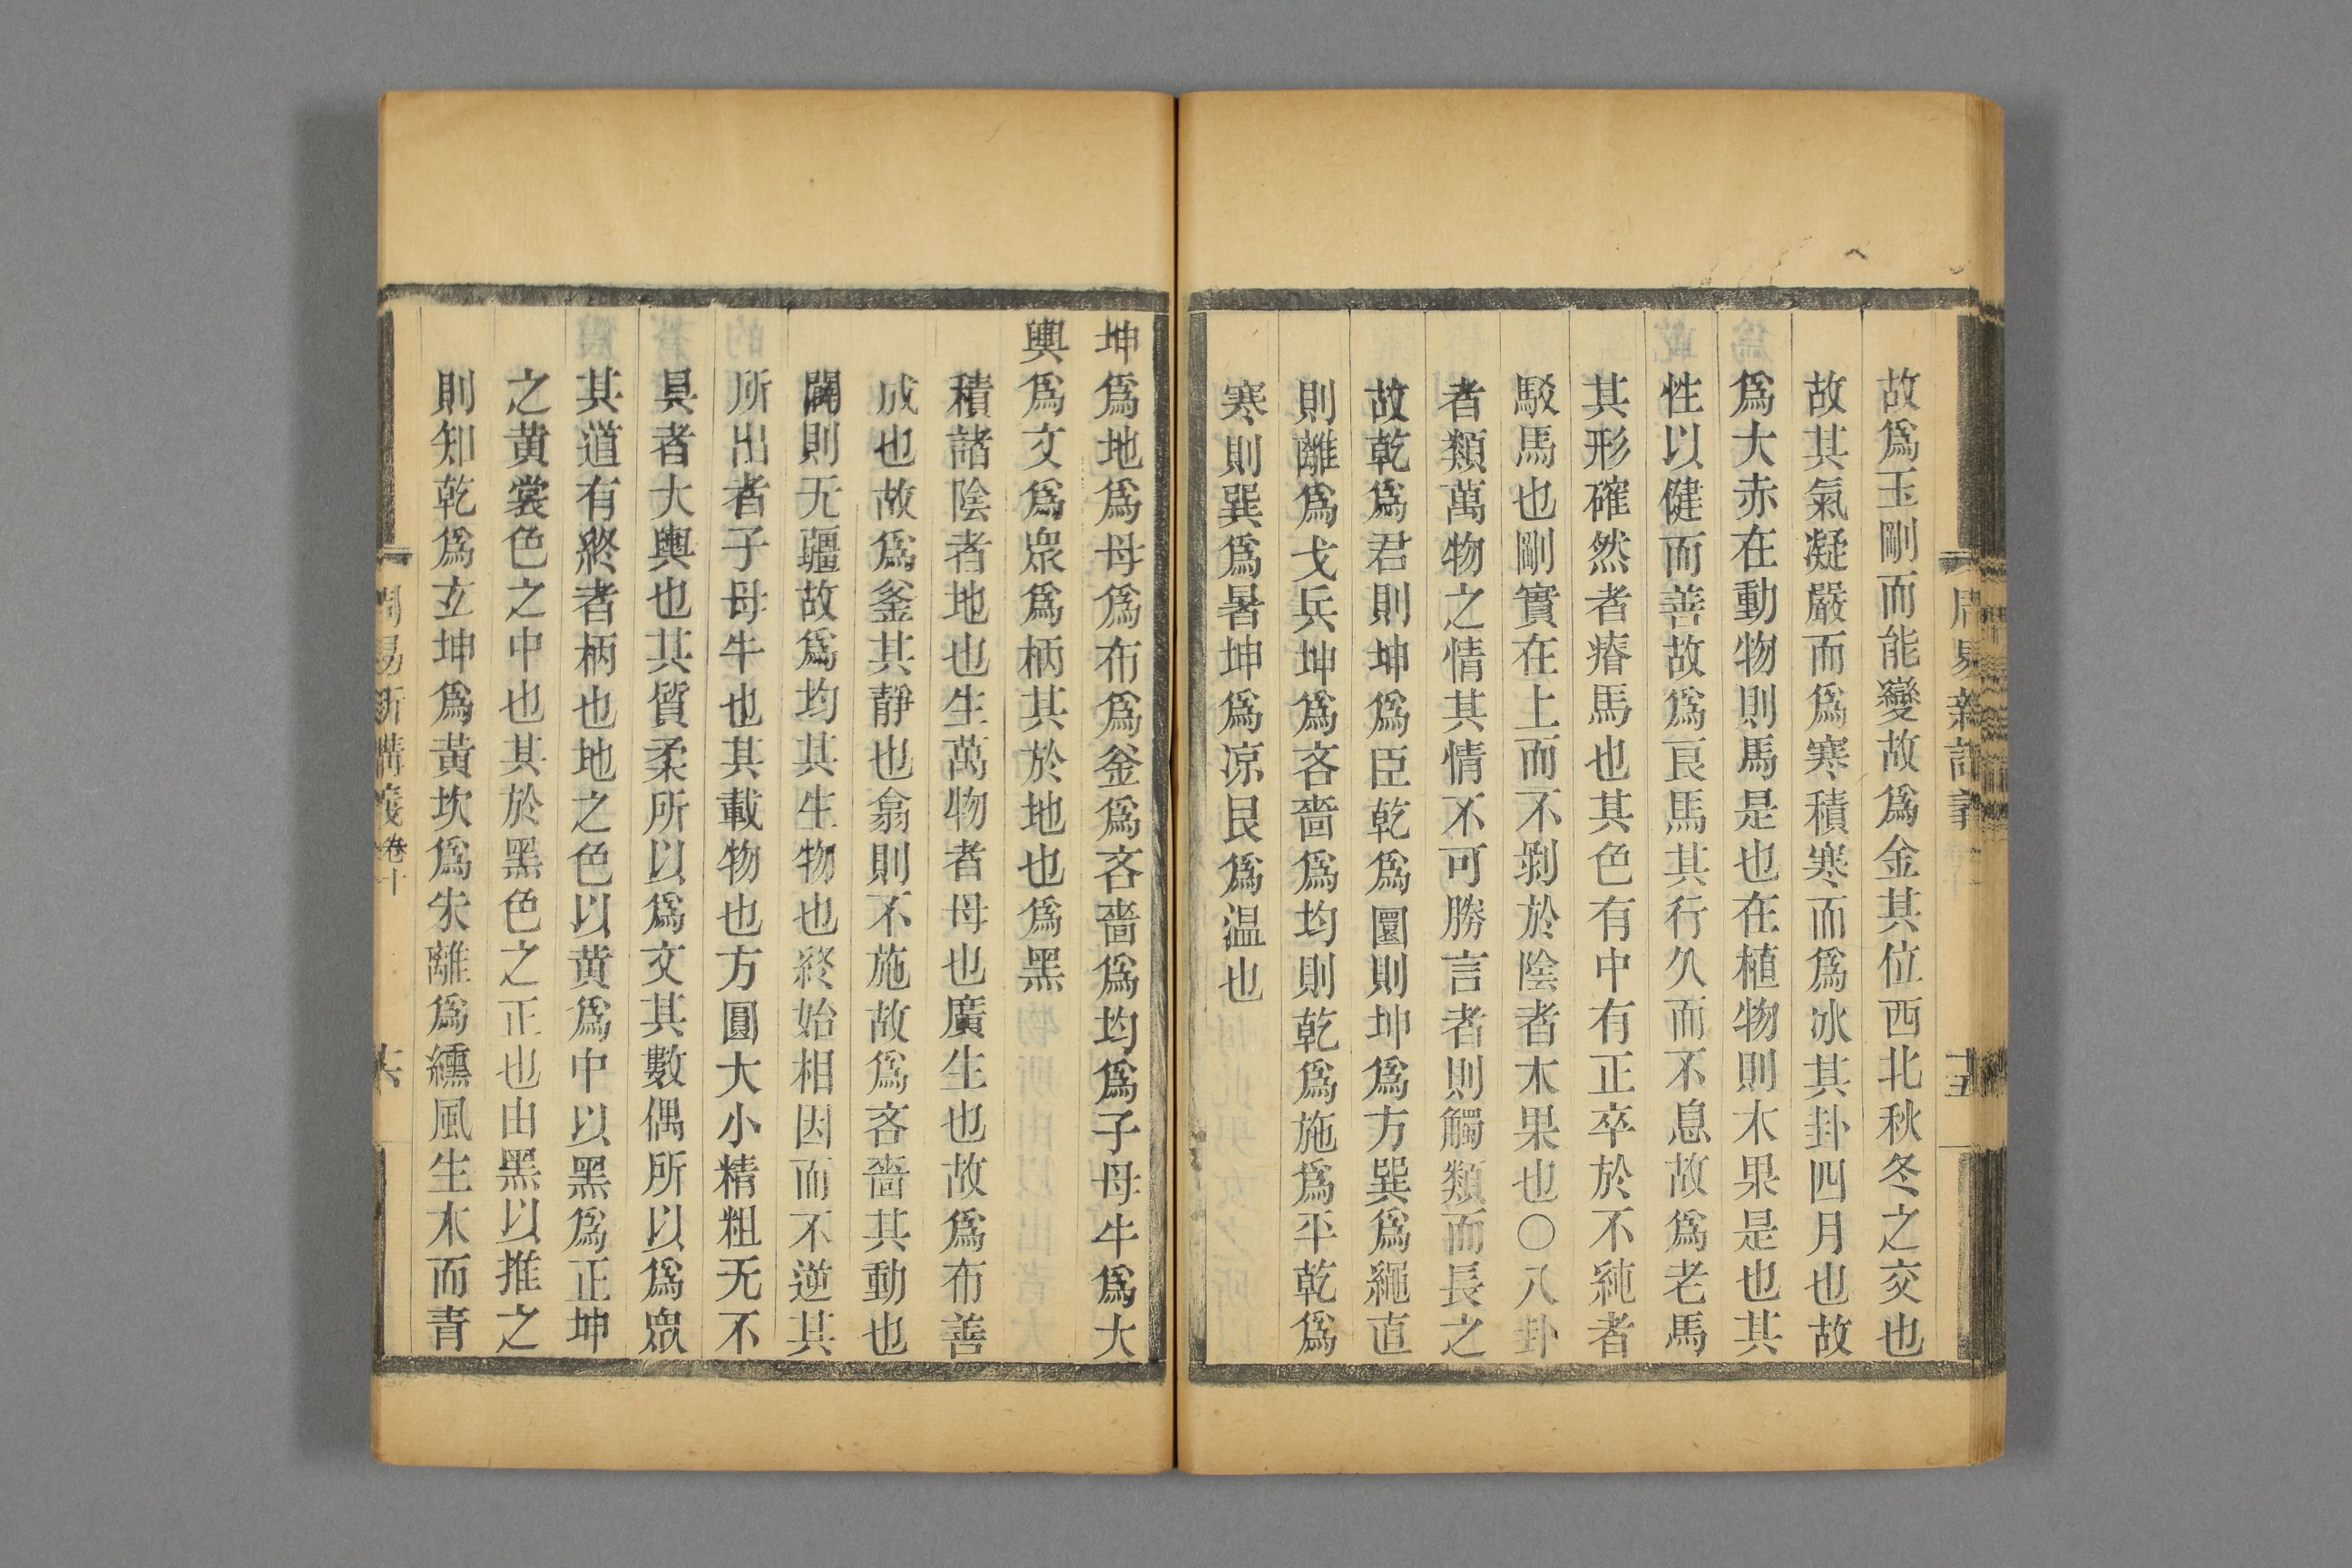 故爲玉剛而能變故爲金其位西北秋冬之交也
故其氣凝嚴而爲寒積寒而爲冰其卦四月也故
爲大赤在動物則馬是也在植物則木果是也其
性以健而善故爲良馬其行久而不息故爲老馬
其形確然者瘠馬也其色有中有正卒於不純者
駁馬也剛實在上而不剝於陰者木果也〇八卦
者類萬物之情其情不可勝言者則觸類而長之
故乾爲君則坤爲臣乾爲圜則坤爲方巽爲繩直
則離爲戈兵坤爲吝嗇爲均則乾爲施爲平乾爲
寒則巽爲暑坤爲凉艮爲温也
坤爲地爲母爲布爲釜爲吝嗇爲均爲子母牛爲大
輿爲文爲眾爲柄其於地也爲黑
積諸陰者地也生萬物者母也廣生也故爲布善
成也故爲釜其靜也翕則不施故爲吝嗇其動也
闢則无疆故爲均其生物也終始相因而不逆其
所出者子母牛也其載物也方圓大小精粗无不
具者大輿也其質柔所以爲文其數偶所以爲眾
其道有終者柄也地之色以黃爲中以黑爲正坤
之黃裳色之中也其於黑色之正也由黑以推之
則知乾爲立坤爲黃坎爲朱離爲纁風生木而青
周易新講義卷十
六